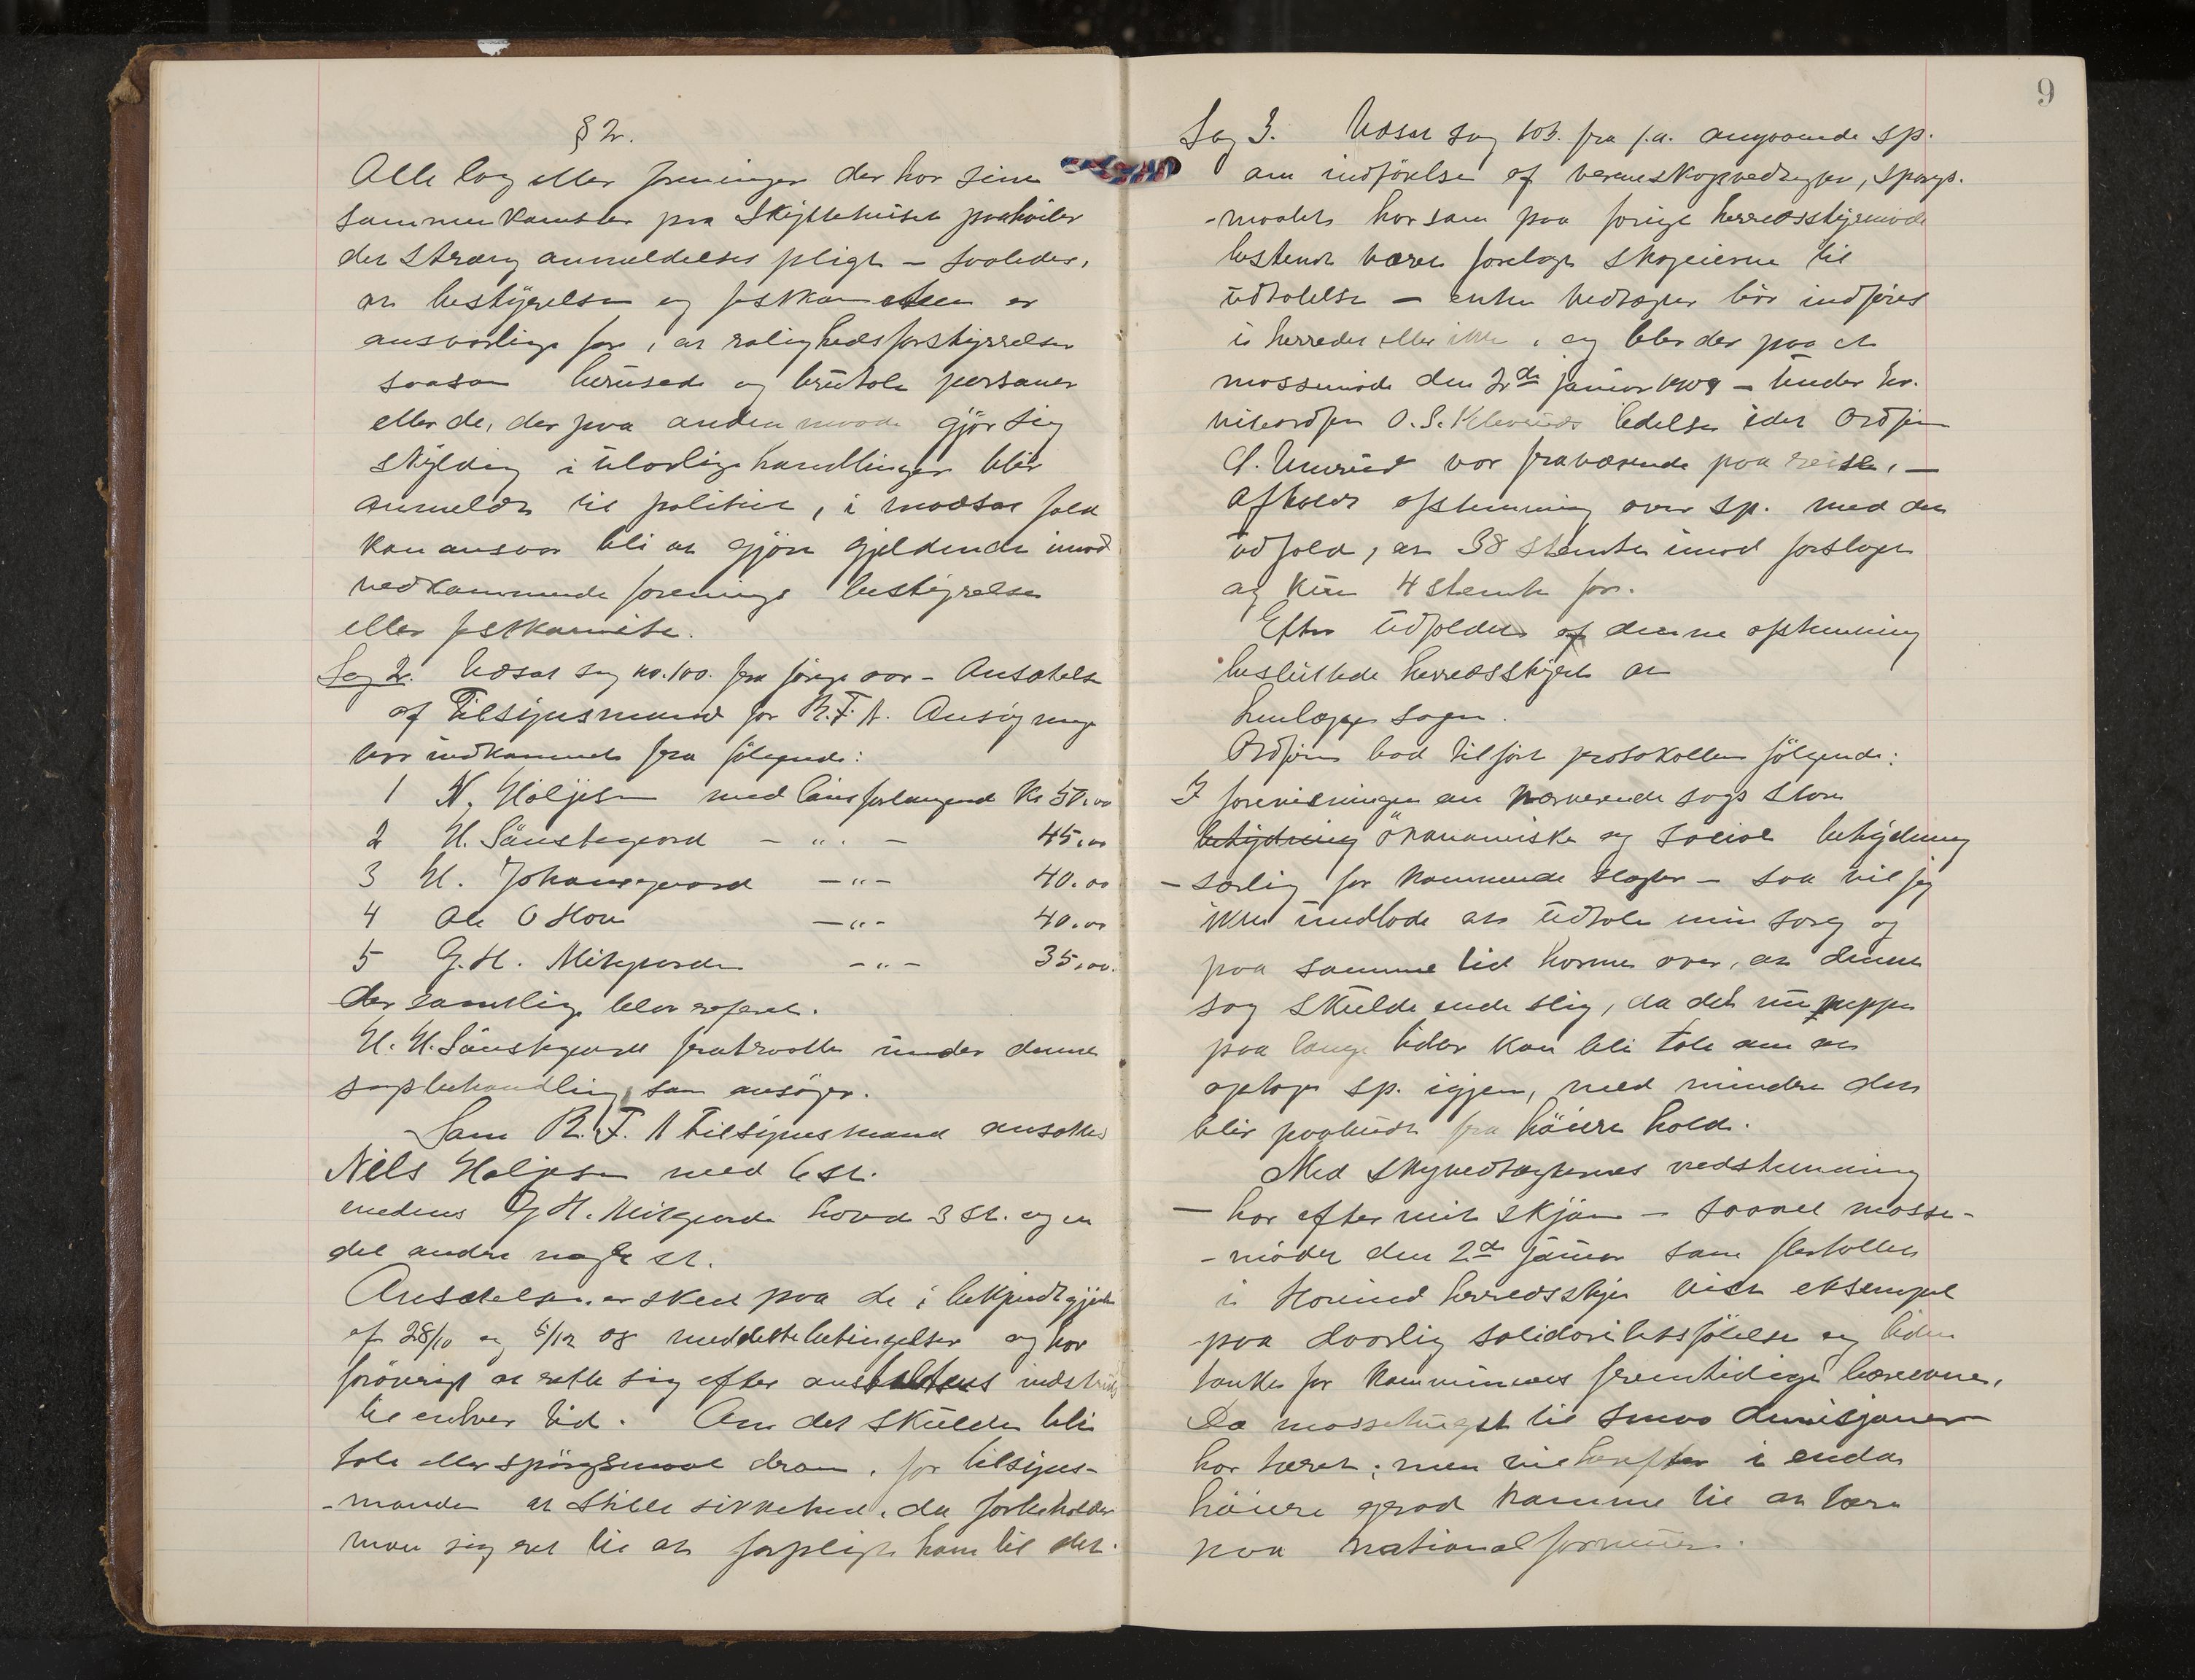 § 2.
Alle lag eller foreninger der har sine
sammenkomster paa Skyttehuset paahviler
det stræng anmeldelses pligt – saaledes,
at bestyrelsen og festkomiteen er
ansvarlige for, at rolighedsforstyrrelser
saasom berusede og brutale personer
eller de, der paa anden maade gjør sig
skyldig i ulovlige handlinger blir
anmeldt til politiet, i modsat fald
kan ansvar bli at gjøre gjeldende imod
vedkommende forenings bestyrelse
eller festkomite.
Sag 2. Udsat sag no. 100. fra forige aar – Ansættelse
af Tilsynsmand for B.F.A. Ansøgninger
var indkommet fra følgende:
1 N. Holjesen med lønsforlangend Kr 50,00
2 H. Sønstegaard – " – 45,00
3 H. Johansgaard – " – 40,00
4 Ole O Hov – " – 40,00
5 G. H. Mikgarden – " – 35,00.
der samtlige blev referert.
H. H. Sønstegaard fratraatte under denne
sagsbehandling, som ansøger.
Som B. F. A Tilsynsmand ansattes
Nils Holjesen med 6 st.
medens G H. Mikgarden havde 3 st. og en
del andre nogle st.
Ansættelsen er skeet paa de i bekjendtgjørelse
af 28/10 og 5/12 08 meddelte betingelser og har
forøvrigt at rette sig efter anstaltens
til enhver tid. Om det skulde bli
tale eller spørgsmaal derom, for tilsyns-
-manden at stille sikkerhed, da forbeholder
man sig ret til at forpligte ham til det.
9
Sag 3. Udsat sag 103. fra f.a. angaaende sp.
om indførelse af verneskogvedtegter, spørgs-
-maalet har som paa forige herredsstyremøde
bestemt været forelagt skogeierne til
udtalelse – enten vedtægter bør indføres
i herredet eller ikke, og blev der paa et
massemøde den 2de januar 1909 – under hr.
viseordfører O. S. Kleviuds ledelse idet Ordfører
C. Unerud var fraværende paa reise, –
afholdt afstemning over sp. med det
udfald, at 38 stemte imod forslaget
og kun 4 stemte for.
Efter udfaldet af denne afstemning
besluttede herredsstyret at
henlægge sagen.
Ordføren bad tilført protokollen følgende:
I forvisningen om nærværende sags store
betydning økonomiske og sociale betydning
– særlig for kommende slægter – saa vil jeg
ikke undlade at udtale min sorg og
paa samme tid harme over, at denne
sag skulde ende slig, da det nu neppe
paa lange tider kan bli tale om at
optage sp. igjen, med mindre det
blir paabudt fra høiere hold.
Med skogvedtægternes nedstemning
– har efter mit skjøn – saavel masse-
-mødet den 2de januar som flertallet
i herredsstyre vist eksempel
paa daarlig solidaritetsfølelse og liden
tanke for kommunens fremtidige bæreevne,
Da massehugst til smaa dimisjoner
har tæret, men vil herefter i endda
høiere grad komme til at tære
paa nationalformuen.